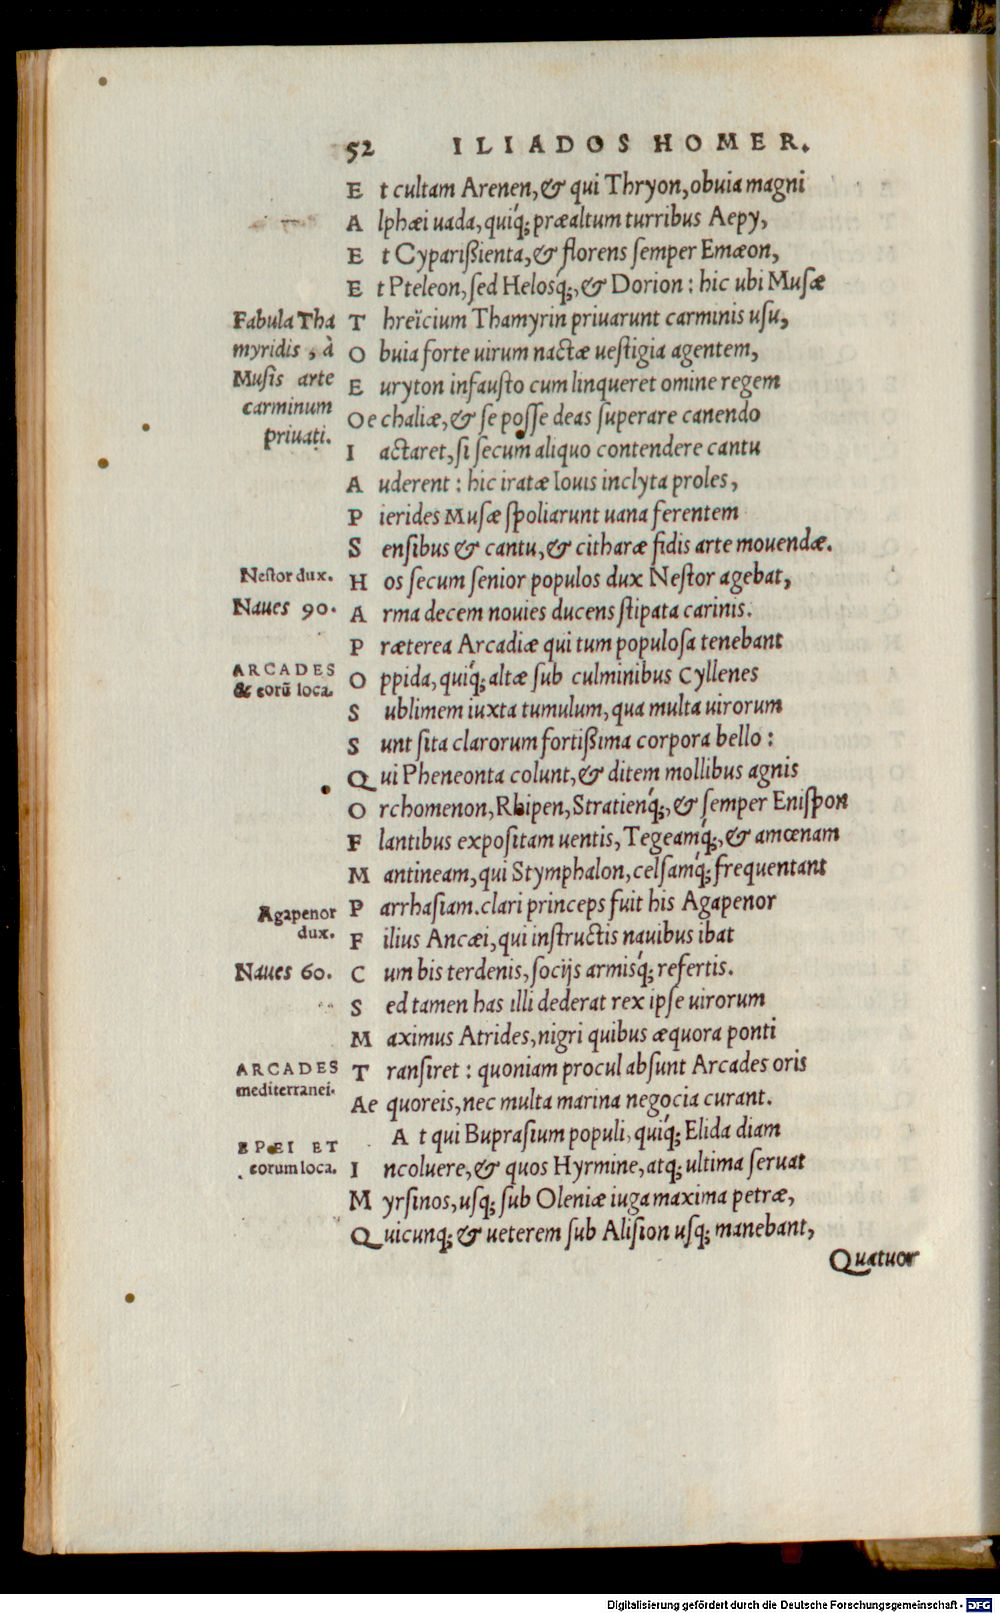 52 ILIADOS HOMER.
Et cultam Arenen, & qui Thryon, obuia magni
Alphæi uada, quiq́; præaltum turribus Aepy,
Et Cyparißienta, & florens semper Emæon,
Et Pteleon, sed Helosq́;, & Dorion: hic ubi Musæ
Fabula Tha
myridis, à
Musis arte
carminum
priuati.
Threïcium Thamyrin priuarunt carminis usu,
Obuia forte uirum nactæ uestigia agentem,
Euryton infausto cum linqueret omine regem
Oechaliæ, & se posse deas superare canendo
Iactaret, si secum aliquo contendere cantu
Auderent: hic iratæ Iouis inclyta proles,
Pierides Musæ spoliarunt uana ferentem
Sensibus & cantu, & citharæ fidis arte mouendæ.
Nestor dux.
Hos secum senior populos dux Nestor agebat,
Naues 90.
Arma decem nouies ducens stipata carinis.
Præterea Arcadiæ qui tum populosa tenebant
ARCADES
& eorũ loca.
Oppida, quiq́; altæ sub culminibus Cyllenes
Sublimem iuxta tumulum, qua multa uirorum
Sunt sita clarorum fortißima corpora bello:
Qui Pheneonta colunt, & ditem mollibus agnis
Orchomenon, Rhipen, Stratienq́;, & semper Enispon
Flantibus expositam uentis, Tegeamq́;, & amœnam
Mantineam, qui Stymphalon, celsamq́; frequentant
Agapenor
dux.
Parrhasiam. clari princeps fuit his Agapenor
Filius Ancæi, qui instructis nauibus ibat
Naues 60.
Cum bis terdenis, socijs armisq́; refertis.
Sed tamen has illi dederat rex ipse uirorum
Maximus Atrides, nigri quibus æquora ponti
ARCADES
mediterranei.
Transiret: quoniam procul absunt Arcades oris
Aequoreis, nec multa marina negocia curant.
At qui Buprasium populi, quiq́; Elida diam
EPEI ET
eorum loca.
Incoluere, & quos Hyrmine, atq; ultima seruat
Myrsinos, usq; sub Oleniæ iuga maxima petræ,
Quicunq; & ueterem sub Alision usq; manebant,
Quatuor
Digitalisierung gefördert durch die Deutsche Forschungsgemeinschaft - DFG